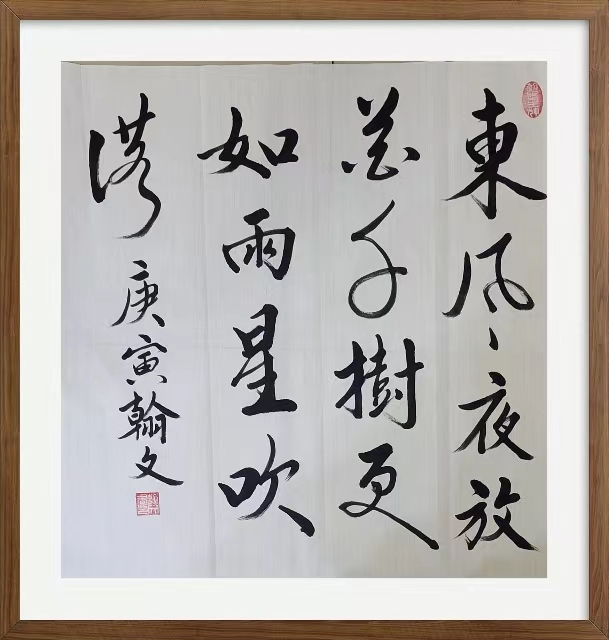 東風、夜放
花千樹更
如雨星吹
落
庚寅翰文